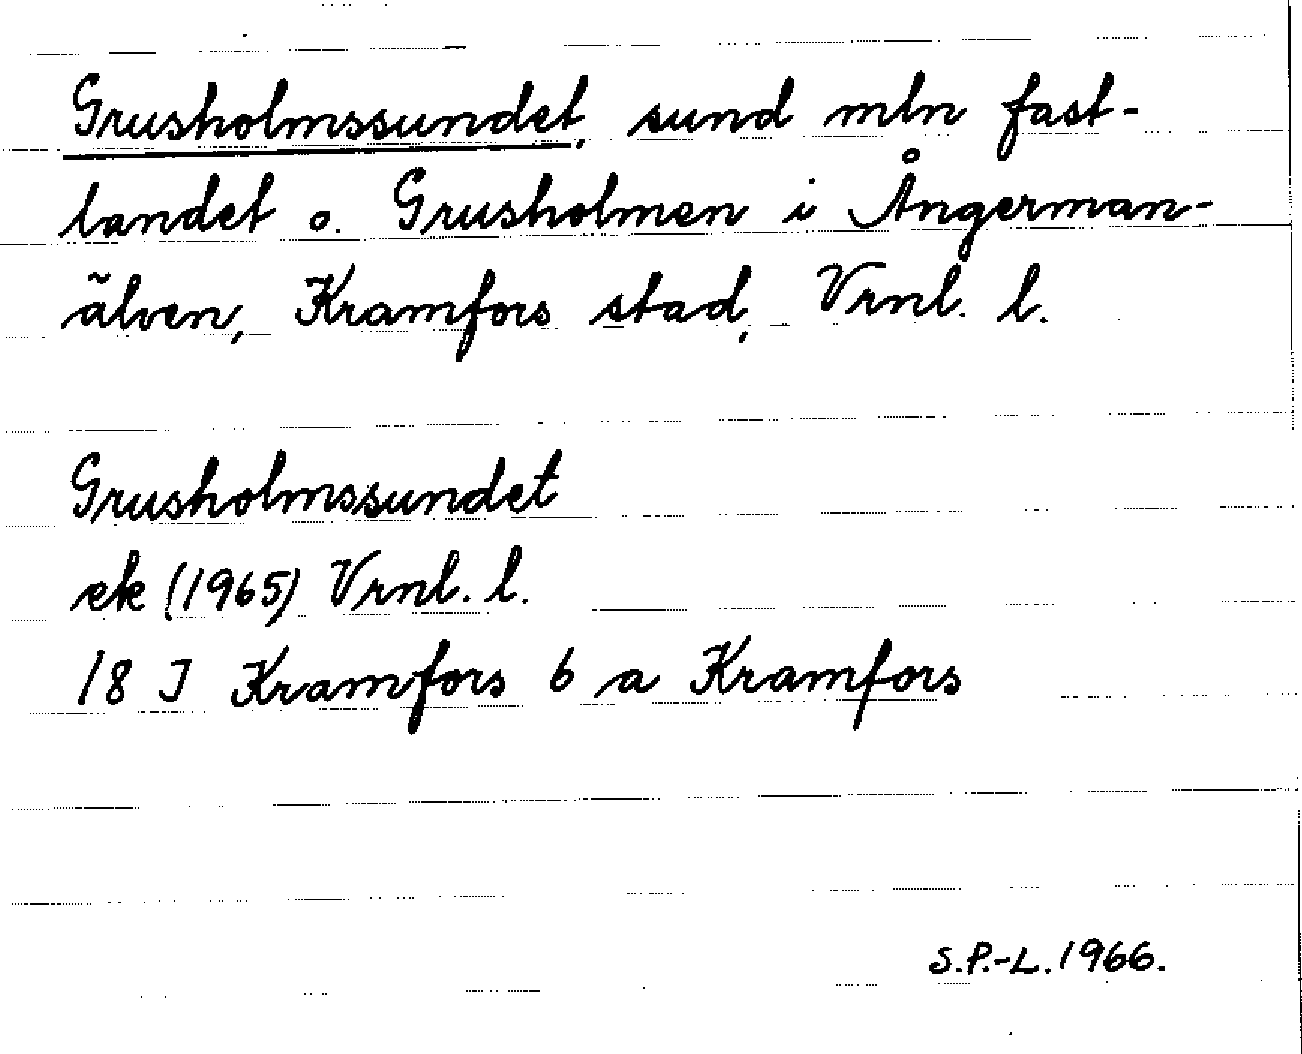 Grusholmssundet, sund mln fast-
landet o. Grusholmen i Ångerman-
älven, Kramfors stad, Vrnl. l.
Grusholmssundet
ek (1965) Vrnl. l.
18 J Kramfors 6 a Kramfors
S.P.-L. 1966.